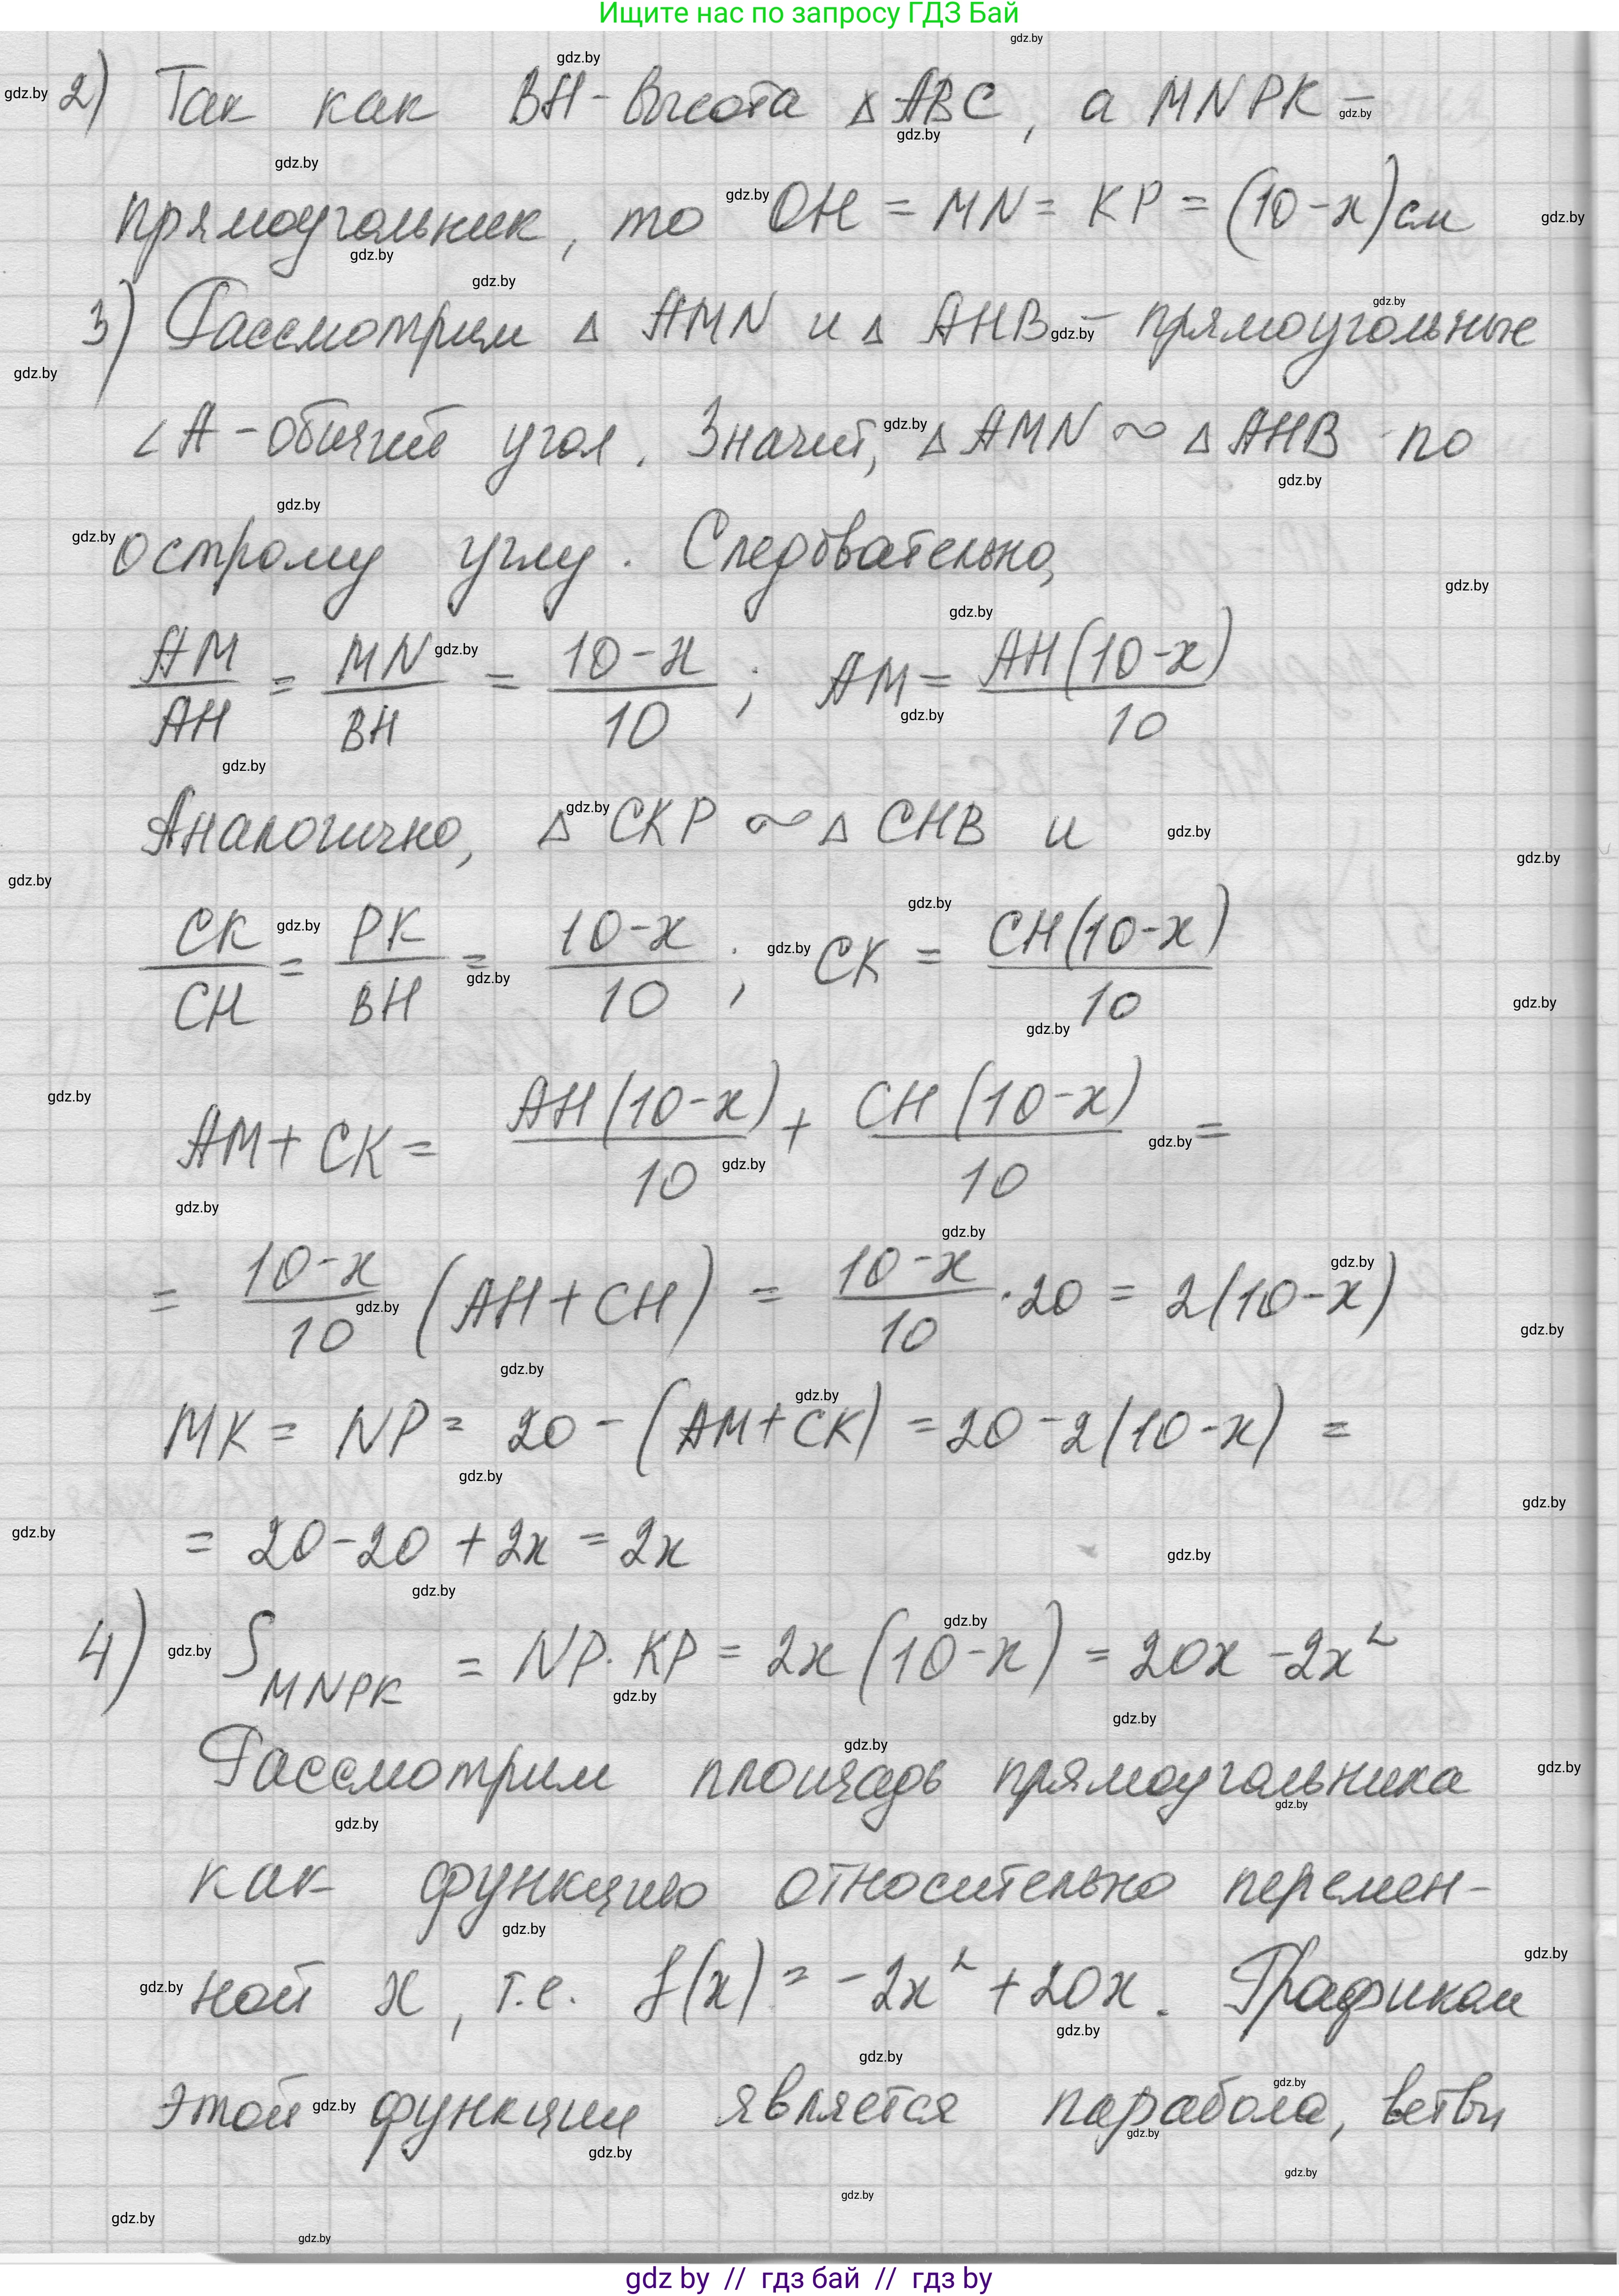 Ищите нас по запросу ГДЗ Бай
2) Так как BH - высота △ABC, а MNPK -
прямоугольник, то OH = MN = KP = (10-x)см
3) Рассмотрим △ AMN и △ AHB - прямоугольные
∠A - общий угол. Значит, △AMN ~ △AHB по
острому углу. Следовательно,
AM/AH = MN/BH = (10-x)/10 ; AM = AH(10-x)/10
Аналогично, △CKP ~ △CHB и
CK/CH = PK/BH = (10-x)/10 ; CK = CH(10-x)/10
AM + CK = AH(10-x)/10 + CH(10-x)/10 =
= (10-x)/10 (AH + CH) = (10-x)/10 · 20 = 2(10-x)
MK = NP = 20 - (AM + CK) = 20 - 2(10-x) =
= 20 - 20 + 2x = 2x
4) S MNPK = NP · KP = 2x(10-x) = 20x - 2x²
Рассмотрим площадь прямоугольника
как функцию относительно перемен-
ной x, т.е. f(x) = -2x² + 20x. Графиком
этой функции является парабола, ветви
gdz by // гдз бай // гдз by